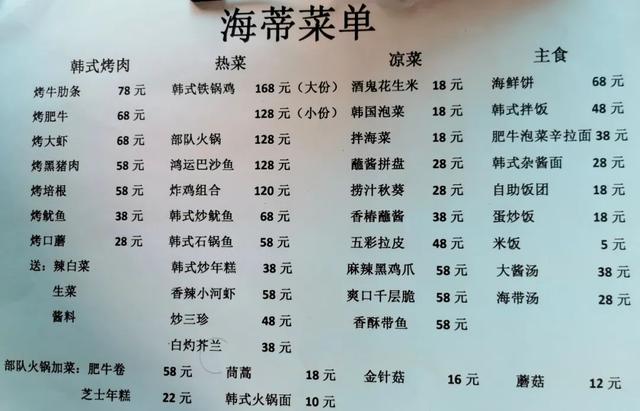 海蒂菜单
韩式烤肉
烤牛肋条 78 元
烤肥牛 68 元
烤大虾 68 元
烤黑猪肉 58 元
烤培根 58 元
烤鱿鱼 38 元
烤口蘑 28 元
送：辣白菜
生菜
酱料
热菜
韩式铁锅鸡 168 元（大份）
128 元（小份）
部队火锅 128 元
鸿运巴沙鱼 128 元
炸鸡组合 120 元
韩式炒鱿鱼 68 元
韩式石锅鱼 58 元
韩式炒年糕 38 元
香辣小河虾 58 元
炒三珍 48 元
白灼芥兰 38 元
凉菜
酒鬼花生米 18 元
韩国泡菜 18 元
拌海菜 18 元
蘸酱拼盘 28 元
捞汁秋葵 28 元
香椿蘸酱 38 元
五彩拉皮 48 元
麻辣黑鸡爪 58 元
爽口千层脆 58 元
香酥带鱼 58 元
主食
海鲜饼 68 元
韩式拌饭 48 元
肥牛泡菜辛拉面 38 元
韩式杂酱面 28 元
自助饭团 18 元
蛋炒饭 18 元
米饭 5 元
大酱汤 38 元
海带汤 28 元
部队火锅加菜：肥牛卷 58 元 茼蒿 18 元 金针菇 16 元 蘑菇 12 元
芝士年糕 22 元 韩式火锅面 10 元